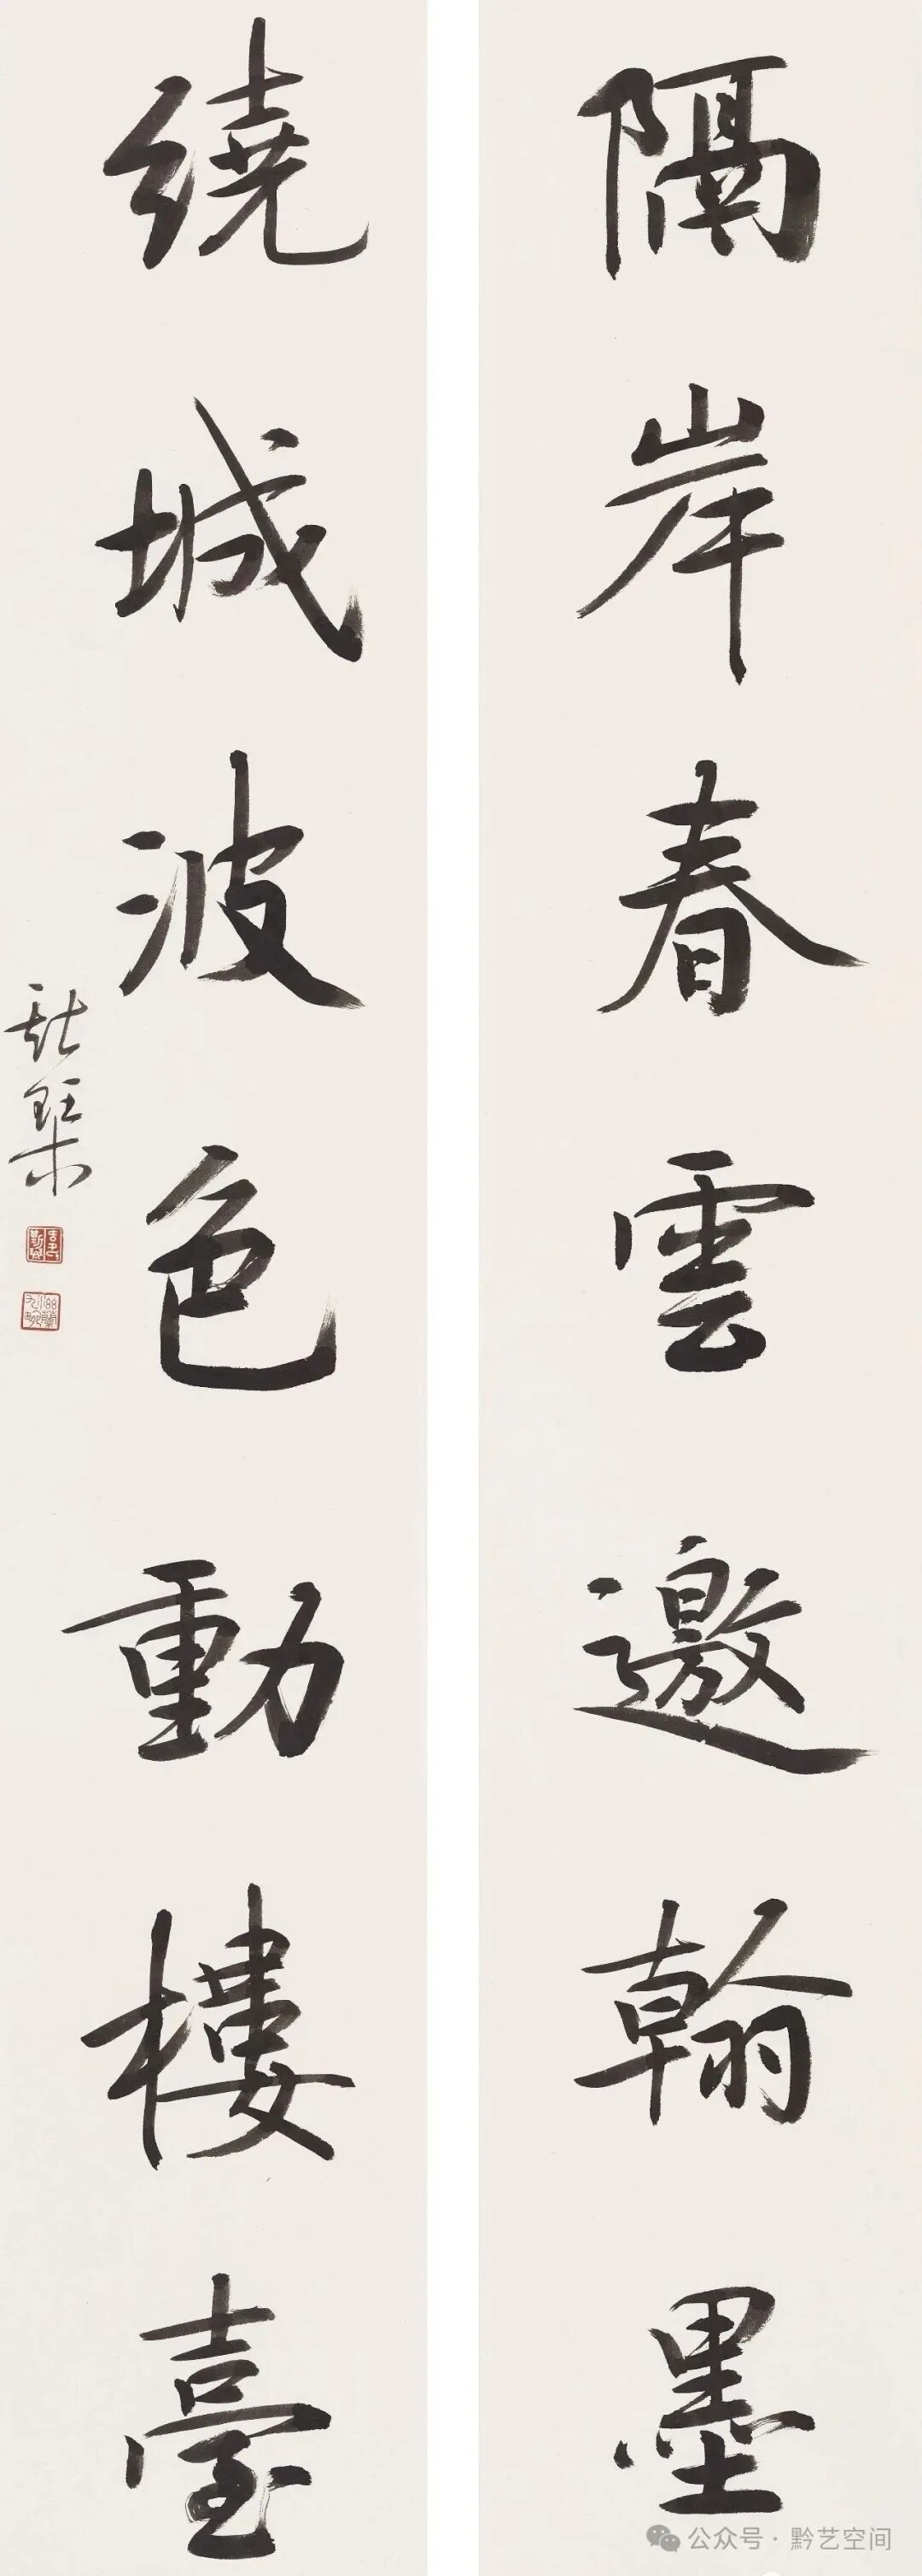 隔岸春雲邀翰墨
繞城波色動樓臺
公众号·黔艺空间